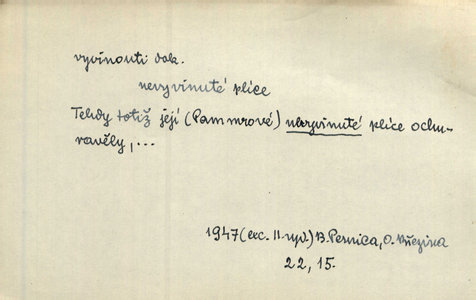 vyvinouti dok.
nevyvinuté plíce
Tehdy totiž její (Pammrové) nevyvinuté plíce ochu-
ravěly, ...
1947 (exc. II. vyd.) B. Pernica, O. Březina
22, 15.